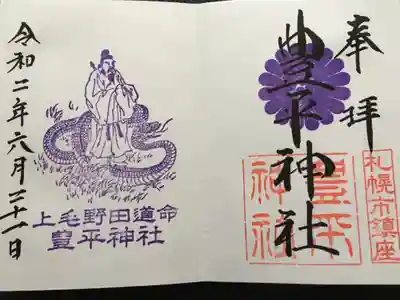 奉拝
豊平神社
札幌市鎮座
豊平
神社
上毛野田道命
豊平神社
令和二年六月二十一日